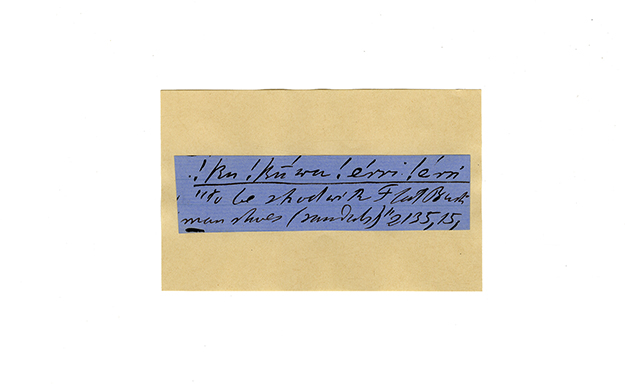 !ku !kúwa !érri !érri
"to be shod with Flat Bush
man shoes (sandals)" 2135,15,